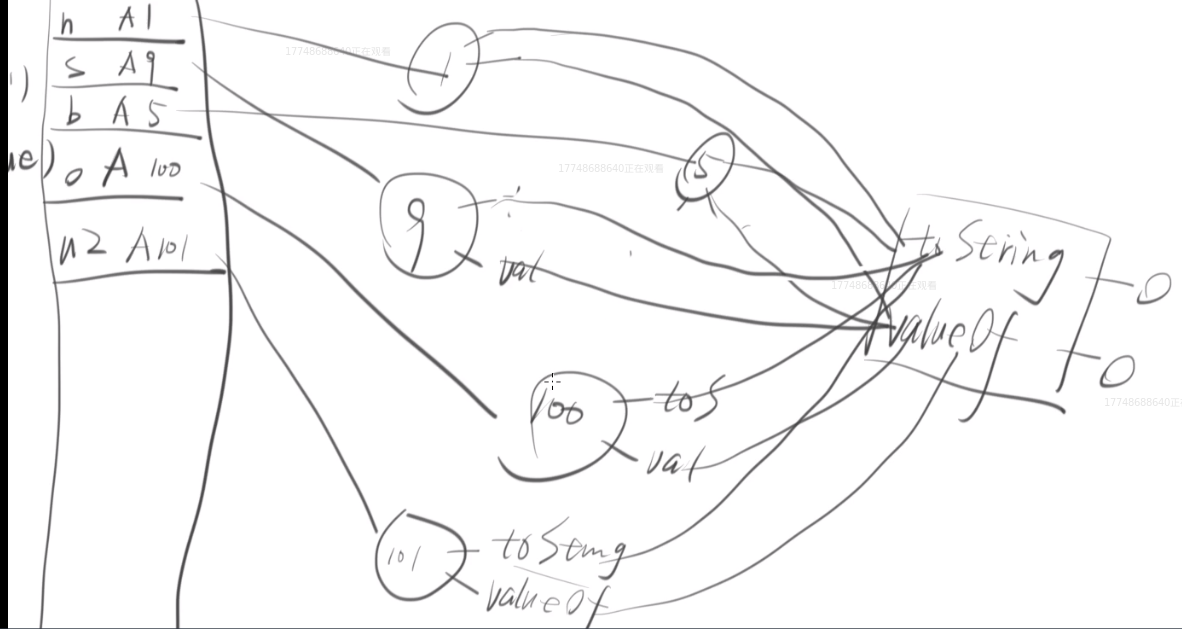 n A1
s A9
b A5
ue) o A 100
n2 A101
1
5
9
val
100
toS
val
101
toString
valueOf
toString
valueOf
0
0
17748688640正在观看
17748688640正在观看
17748688640正在观看
17748688640正在